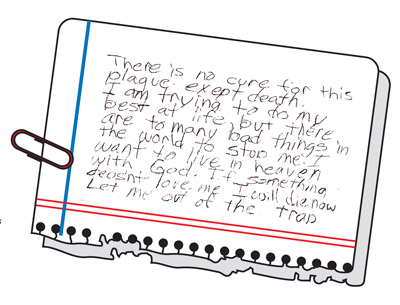 There is no cure for this
plaque exept death.
I am trying to do my
best at life, but there
are to many bad things in
the world to stop me. I
want to live in heaven
with God. If something
deosnt love me I will die now
Let me out of the trap